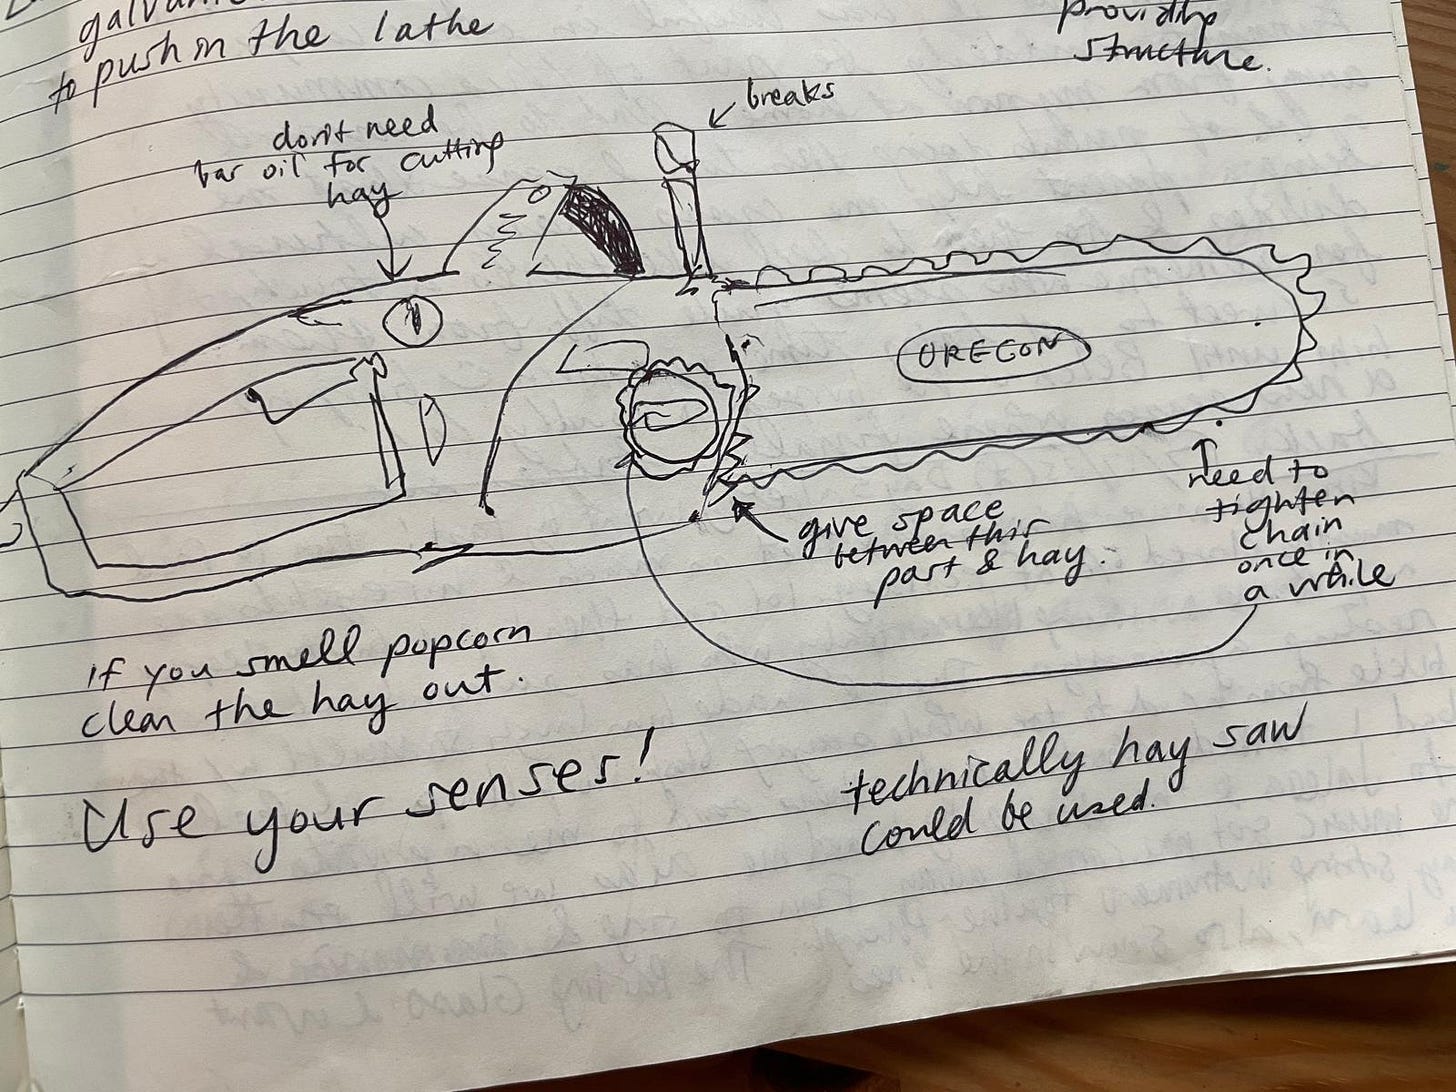 to push in the lathe
providing
structure.
breaks
don't need
bar oil for cutting
hay
OREGON
give space
between this
part & hay.
need to
tighten
chain
once in
a while
if you smell popcorn
clean the hay out.
Use your senses!
technically hay saw
could be used.